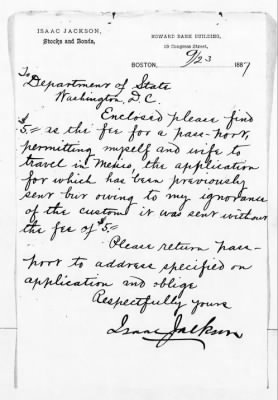 ISAAC JACKSON,
Stocks and Bonds,
HOWARD BANK BUILDING,
19 Congress Street,
BOSTON, 9/23 1887
To
Department of State
Washington, D.C.
Enclosed please find
$5.= as the fee for a pass-port,
permitting myself and wife to
travel in Mexico, the application
for which has been previously
sent but owing to my ignorance
of the custom it was sent without
the fee of $5.=
Please return pass-
port to address specified on
application and oblige
Respectfully yours
Isaac Jackson